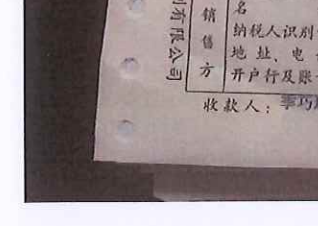 有限公司
销售方
名
纳税人识别
地址、电
开户行及账
收款人：李巧